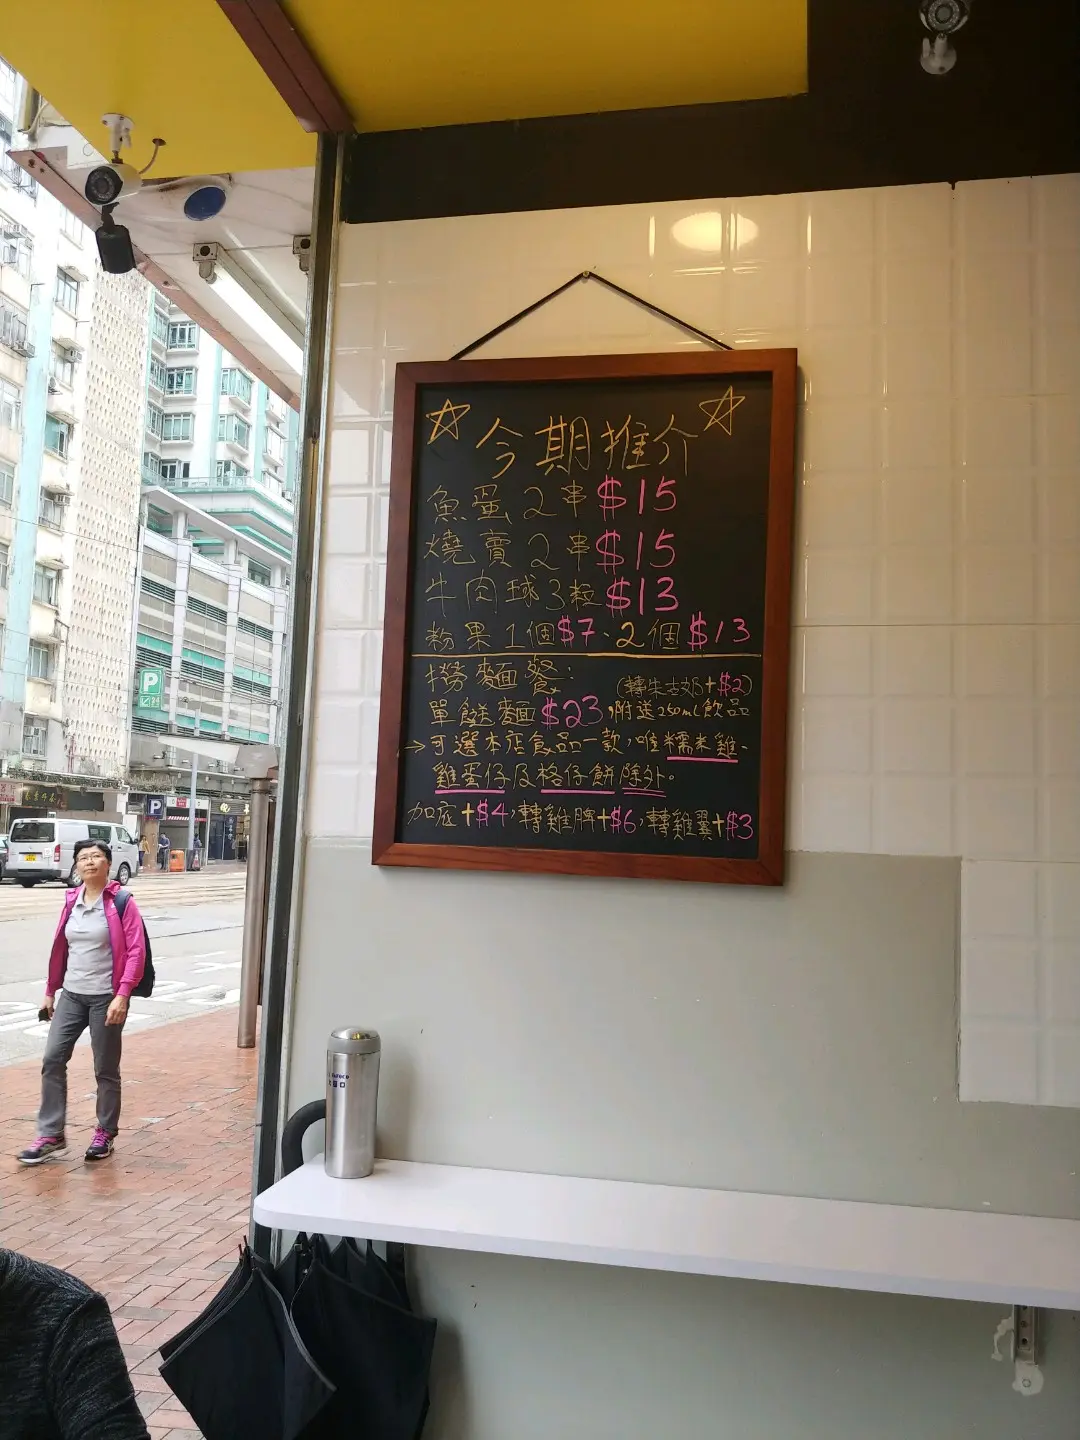 ☆今期推介☆
魚蛋2串$15
燒賣2串$15
牛肉球3粒$13
粉果1個$7.2個$13
撈麵餐:
(轉朱古奶+$2)
單餸麵$23,附送250mL飲品
→可選本店食品一款,唯糯米雞、
雞蛋仔及格仔餅除外。
加底+$4,轉雞脾+$6,轉雞翼+$3
P
P